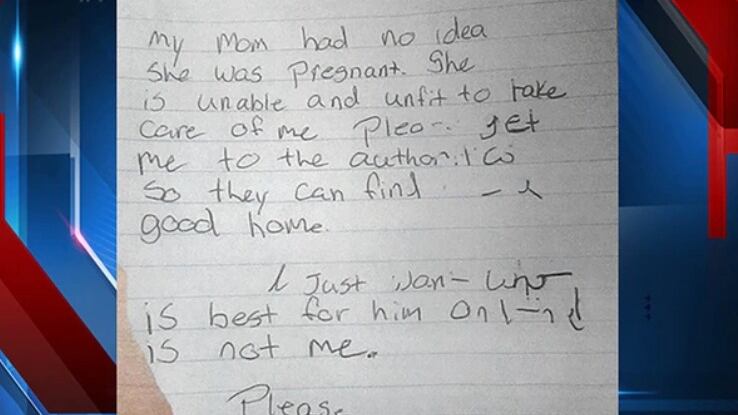 my mom had no idea
She was Pregnant. She
is unable and unfit to take
care of me get
me to the
So they can find
good home.
I Just
is best for him
is not me.